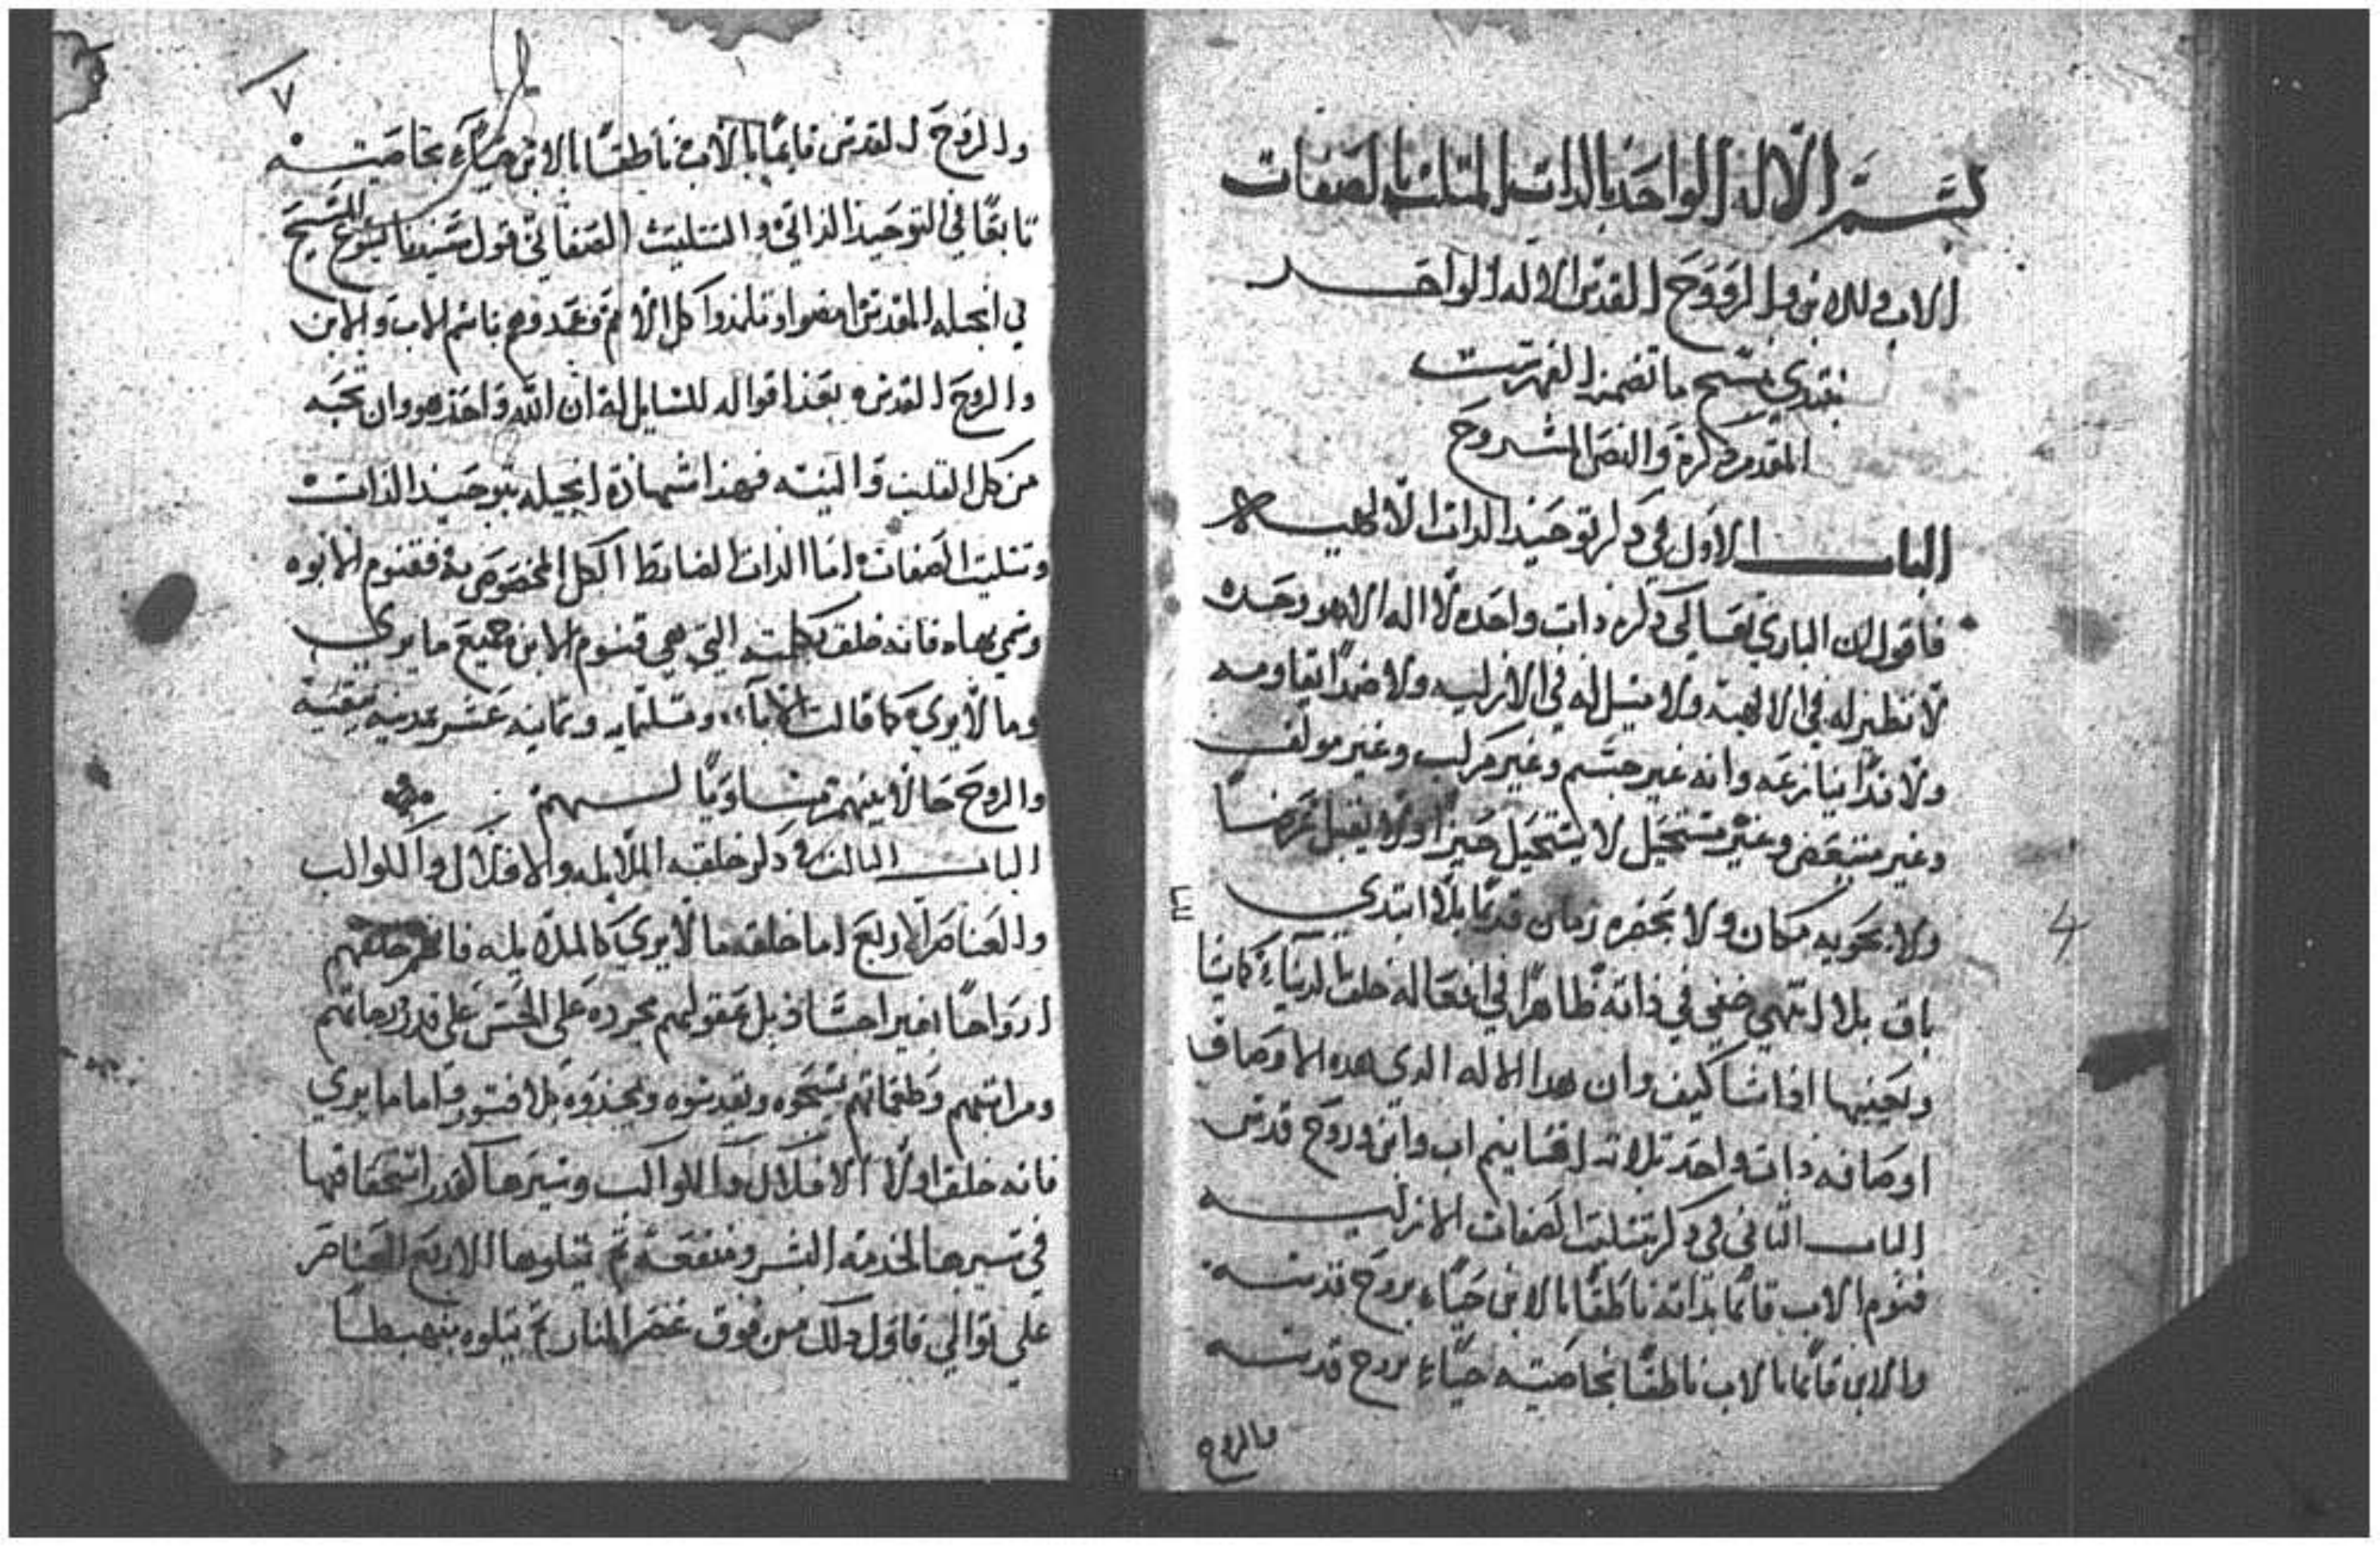 بسم الاله الواحد بالذات المتلت بالصفات
الاب والابن والروح القدس الاله الواحد
نبتدي بشرح ما تضمنه الفهرست
المقدم ذكره والنص المشروح
الباب الاول في ذكر توحيد الذات الالاهيه
فاقول ان الباري تعالى ذكره ذات واحده لا اله الا هو وحده
لا نظير له في الالهية ولا متيل له في الازليه ولا ضدًا يقاومه
ولا ندًا ينازعه وانه غير جسم وغير مركب وغير مولف
وغير متبعض وغير مستحيل لا يستحيل حيزًا ولا يقبل عرضًا
ولا يحويه مكان ولا يحضره زمان قديمًا بلا ابتدي
باق بلا انتهي خفي في ذاته ظاهرًا في افعاله خلق الدنيا كايشا
ويحييها اذا شا كيف وان هدا الاله الدي هده الاوصاف
اوصافه ذات واحد تلاته اقانيم اب وابن وروح قدس
الباب التاني في ذكر تتليت الصفات الازليه
قنوم الاب قايمًا بذاته ناطقًا بالابن حيًا بروح قدسه
والابن قايمًا بالاب ناطقًا بخاصيته حيًا بروح قدسه
والروح
٧
والروح القدس قايمًا بالاب ناطقًا بالابن حيًا بخاصيته
تابعًا في التوحيد الذاتي والتتليت الصفاتي قول سيدنا يسوع المسيح
في انجيله المقدس امضوا وتلمذوا كل الامم وعمدوهم باسم الاب والابن
والروح القدس بعد اقواله للسايل له ان الله واحد هو وان تحبه
من كل القلب والنيه فهذا شهادة انجيله بتوحيد الذات
وتتليت الصفات اما الذات الضابط الكل المخصوص به فقنوم الابوه
فانه خلق بكلمته التي هي قنوم الابن جميع ما يري
وما لا يري كما قالت الابا وتلتمايه وتمانيه عشر بمدينه نيقيه
والروح حالا بينهم مساويًا لهم
الباب التالت في ذكر خلقه الملايكه والافلاك والكواكب
والعناصر الاربع اما خلقه ما لا يري كالملايكه فانه خلقهم
ارواحًا بغير اجساد بل عقولهم مجرده على الحس على قدر درجاتهم
ومراتبهم وطغماتهم يسبحوه ويقدسوه ويمجدوه بلا فتور واما ما يري
فانه خلق اولا الافلاك والكواكب وسيرها كقدر استحقاقها
في سيرها لخدمة البشر ومنفعة تم تتلوها الاربع العناصر
على توالي فاول ذلك من فوق عنصر النار تم يتلوه منهبطًا